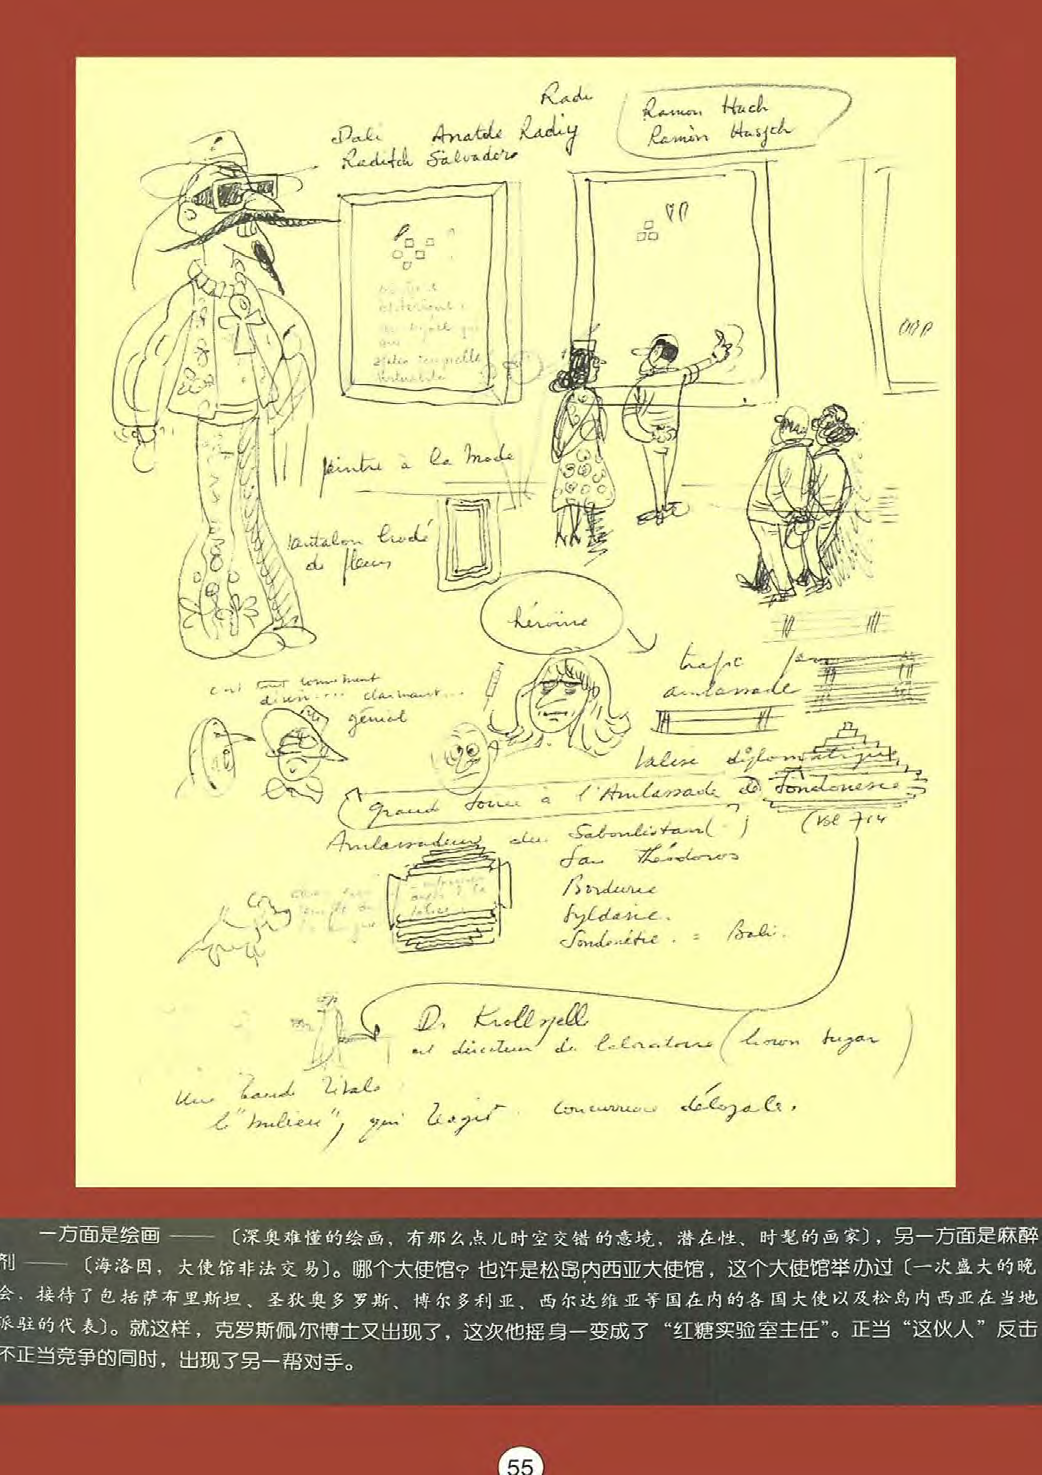 Radi
Ramon Hach
Ramon Hasjch
Dali Anatole Radiy
Raditch Salvador
peintre à la mode
pantalon brodé
de fleurs
héroïne
trafic par
ambassade
génial
valise diplomatique
grand soirée à l'Ambassade de Sondonésie
Ambassadeur du Saboulistan
(vol 714
San Théodoros
Bordurie
Syldavie.
= Bali.
Dr Krollspell
est directeur de laboratoire (brown sugar)
Une bande rivale
le "milieu", qui réagit. concurrence déloyale.
一方面是绘画 —— 〔深奥难懂的绘画，有那么点儿时空交错的意境，潜在性、时髦的画家〕，另一方面是麻醉
剂 —— 〔海洛因，大使馆非法交易〕。哪个大使馆？也许是松岛内西亚大使馆，这个大使馆举办过〔一次盛大的晚
会，接待了包括萨布里斯坦、圣狄奥多罗斯、博尔多利亚、西尔达维亚等国在内的各国大使以及松岛内西亚在当地
派驻的代表〕。就这样，克罗斯佩尔博士又出现了，这次他摇身一变成了“红糖实验室主任”。正当“这伙人”反击
不正当竞争的同时，出现了另一帮对手。
55